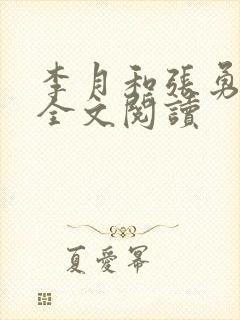 李月和張勇
全文閱讀
夏愛冪